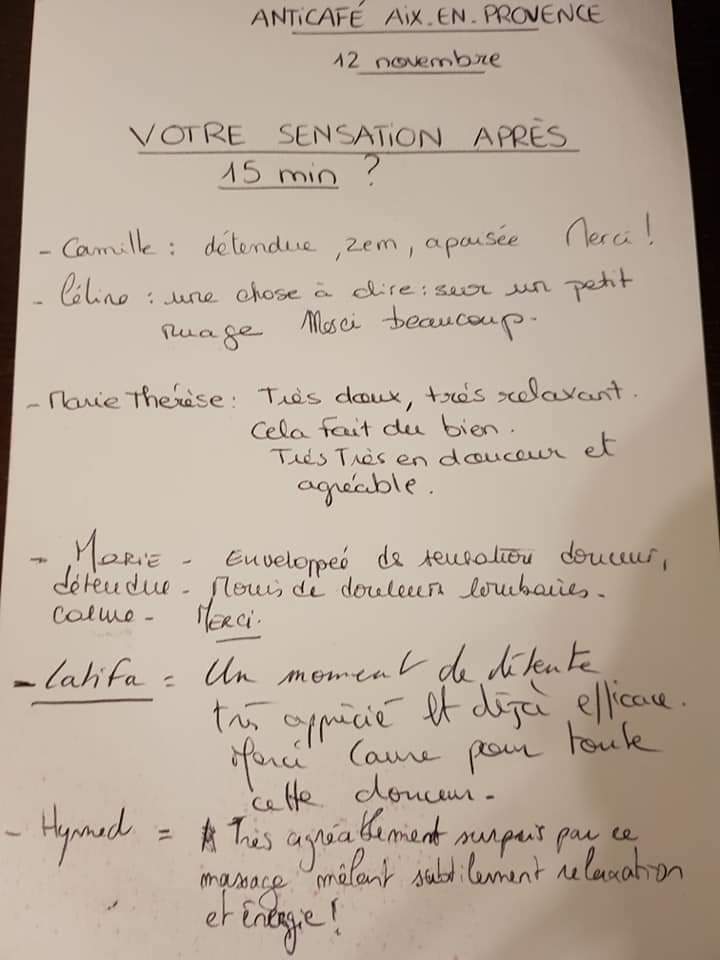 ANTICAFÉ AIX.EN.PROVENCE
12 novembre
VOTRE SENSATION APRÈS
15 min ?
- Camille : détendue, zem, apaisée Merci !
- Céline : une chose à dire : sur un petit
nuage Merci beaucoup.
- Marie Thérèse : Très doux, très relaxant.
Cela fait du bien.
Très Très en douceur et
agréable.
- MARIE - Enveloppeé de sensation douceur,
détendue - Moins de douleurs lombaires.
calme - MERCI.
- Latifa = Un moment de détente
très apprécié et déjà efficace.
Merci Laure pour toute
cette douceur -
- Hymed = Très agréablement surpris par ce
massage mêlant subtilement relaxation
et énergie !